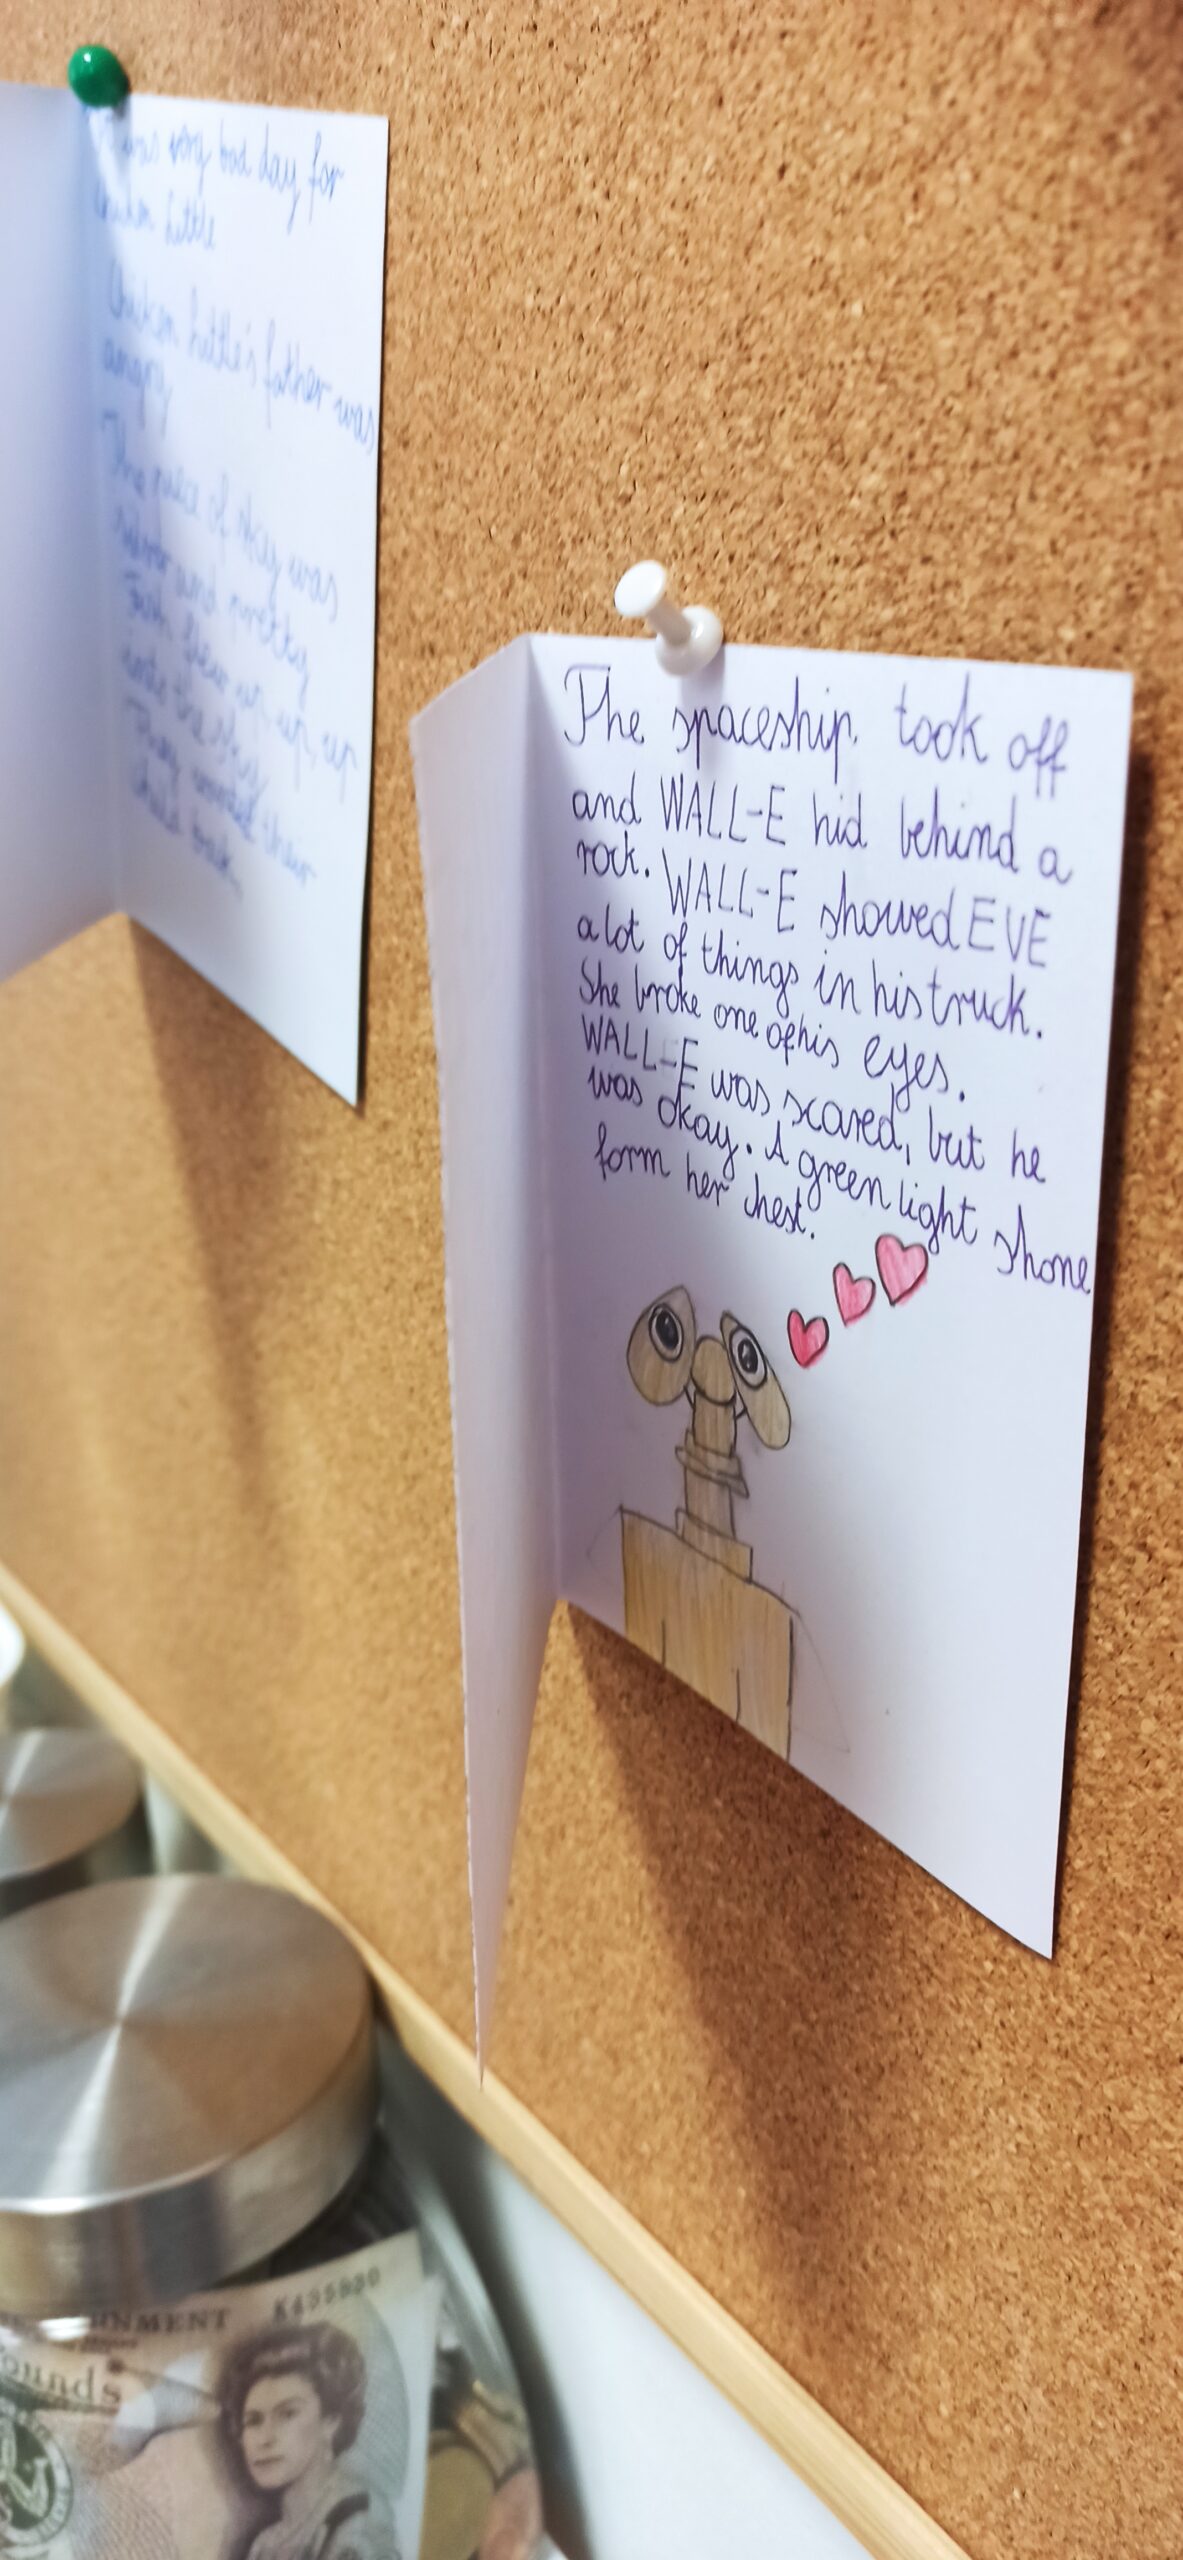 very bad day for
Little
Chicken Little's father was
angry
The piece of sky was
and pretty
Fish flew up, up, up
into the sky
They wanted their
child back.
The spaceship took off
and WALL-E hid behind a
rock. WALL-E showed EVE
a lot of things in his truck.
She broke one of his eyes.
WALL-E was scared, but he
was okay. A green light shone
form her chest.
K455920
ounds